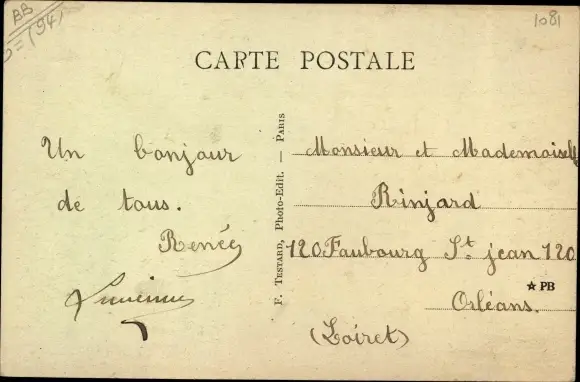 BB
(94)
1081
CARTE POSTALE
Un bonjour
de tous.
Renée
F. TESTARD, Photo-Edit. — PARIS
Monsieur et Mademoiselle
Rinjard
120 Faubourg St. jean 120
Orléans.
(Loiret)
★ PB